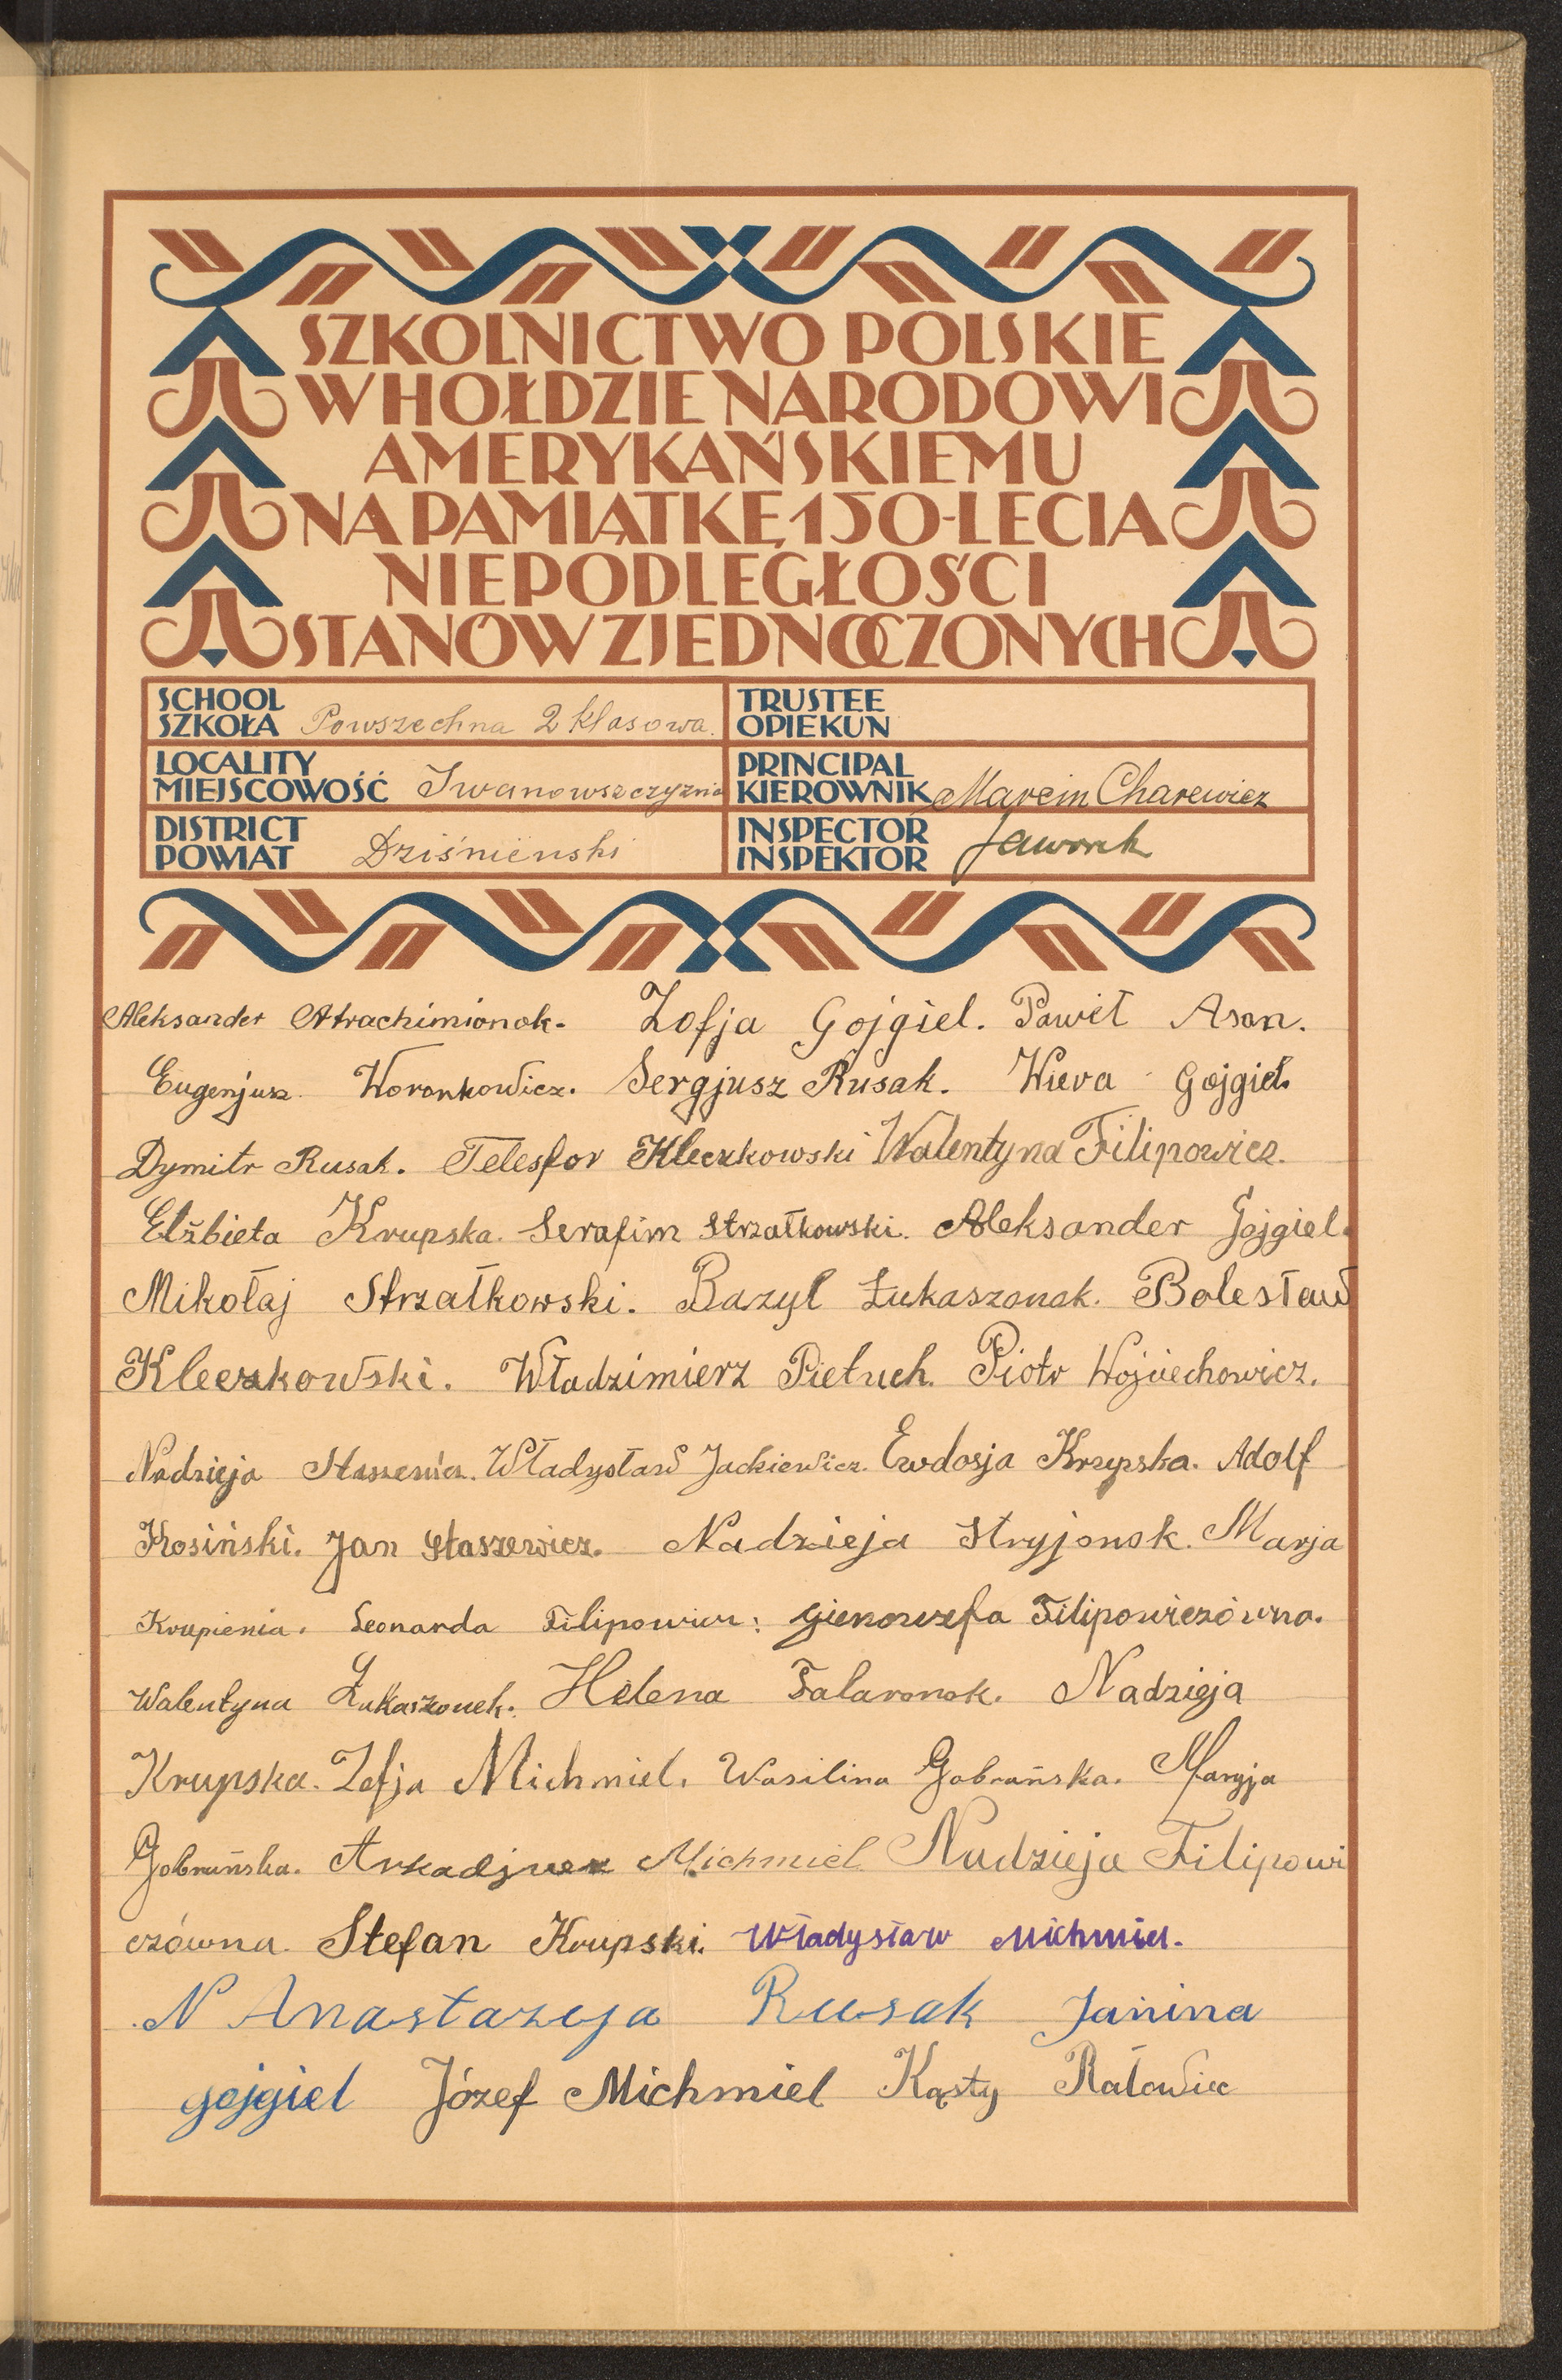 SZKOLNICTWO POLSKIE
W HOŁDZIE NARODOWI
AMERYKAŃSKIEMU
NA PAMIĄTKĘ 150-LECIA
NIEPODLEGŁOŚCI
STANÓW ZJEDNOCZONYCH
SCHOOL
SZKOŁA Powszechna 2 klasowa.
TRUSTEE
OPIEKUN
LOCALITY
MIEJSCOWOŚĆ Iwanowszczyzna
PRINCIPAL
KIEROWNIK Marcin Charewicz
DISTRICT
POWIAT Dziśnieński
INSPECTOR
INSPEKTOR Jaworek
Aleksander Atrachimionok. Zofja Gojgiel. Paweł Asan.
Eugenjusz Woronkowicz. Sergjusz Rusak. Wiera Gojgiel.
Dymitr Rusak. Telesfor Kleczkowski Walentyna Filipowicz.
Elżbieta Krupska. Serafim Strzałkowski. Aleksander Gojgiel.
Mikołaj Strzałkowski. Bazyl Łukaszonak. Bolesław
Kleczkowski. Władzimierz Pietuch. Piotr Wojciechowicz.
Nadzieja Władysław Jackiewicz. Ewdosja Krupska. Adolf
Kosiński. Jan Staszewicz. Nadzieja Stryjonok. Marja
Krupienia. Leonarda Filipowicz. Gienowefa Filipowiczówna.
Walentyna Łukaszonek. Helena Talaronok. Nadzieja
Krupska. Zofja Michmiel. Wasilina Gobrańska. Maryja
Gobrańska. Arkadjusz Michmiel Nadzieja Filipowi
czówna. Stefan Krupski. Władysław Michmiel.
N Anastazyja Rusak Janina
gojgiel Józef Michmiel Kąsty